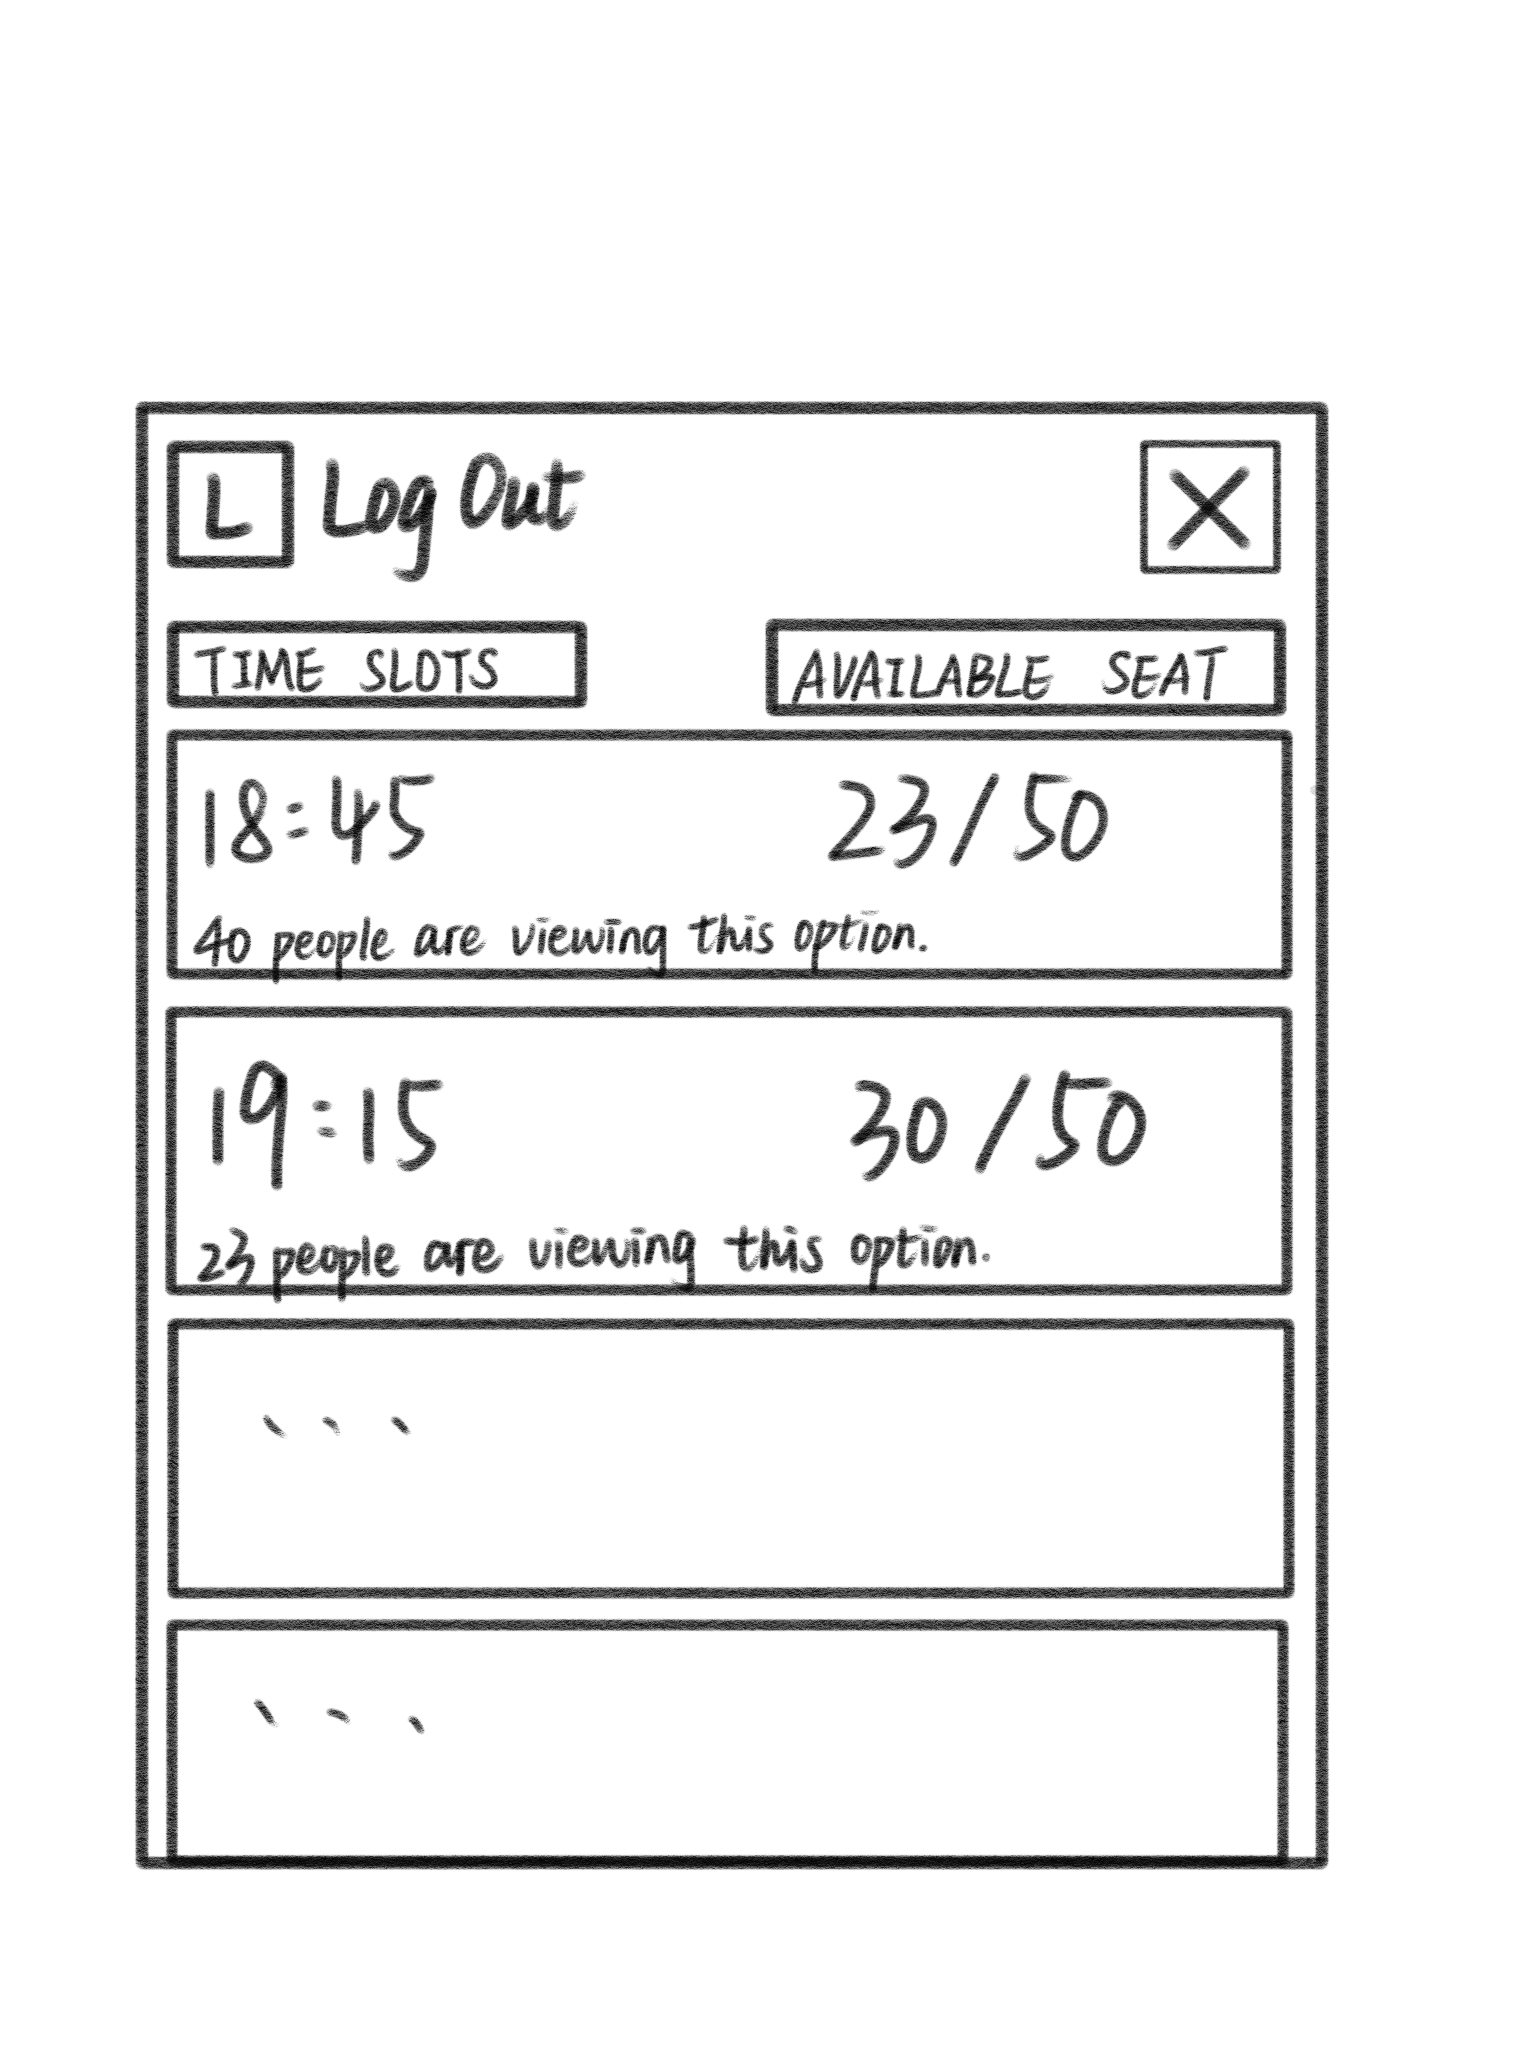 L Log Out X
TIME SLOTS AVAILABLE SEAT
18:45 23/50
40 people are viewing this option.
19:15 30/50
23 people are viewing this option.
...
...